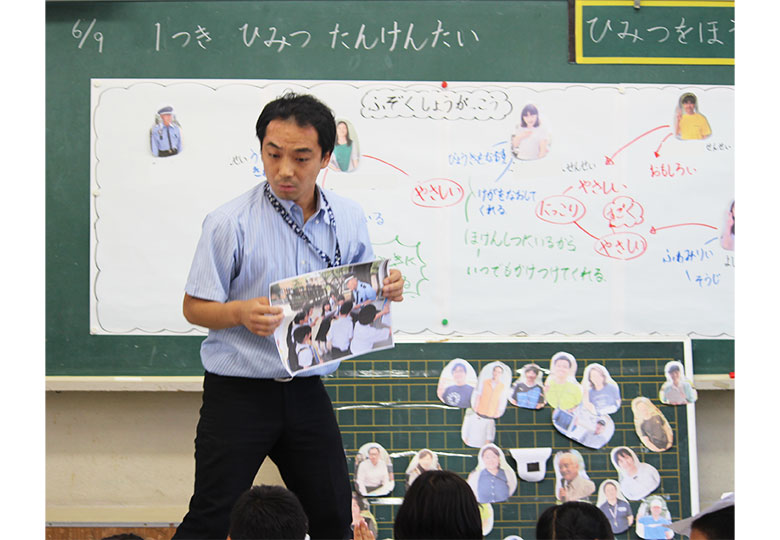 6/9 1つき ひみつ たんけんたい
ひみつをほう
ふぞくしょうがっこう
せい
やさしい
いる
けがをなおして
くれる
ほけんしつだいるから
いつでもかけつけてくれる。
せんせい
やさしい
にっこり
やさしい
おもしろい
せんせい
ふわみりい
そうじ
よし